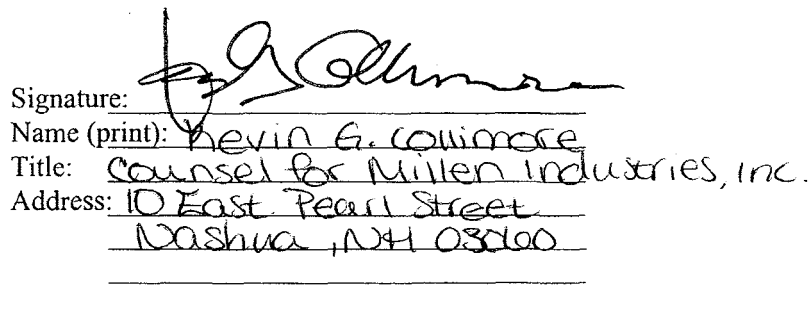 Signature: Kevin G. Collimore
Name (print): Kevin G. Collimore
Title: Counsel for Millen Industries, Inc.
Address: 10 East Pearl Street
Nashua, NH 03060